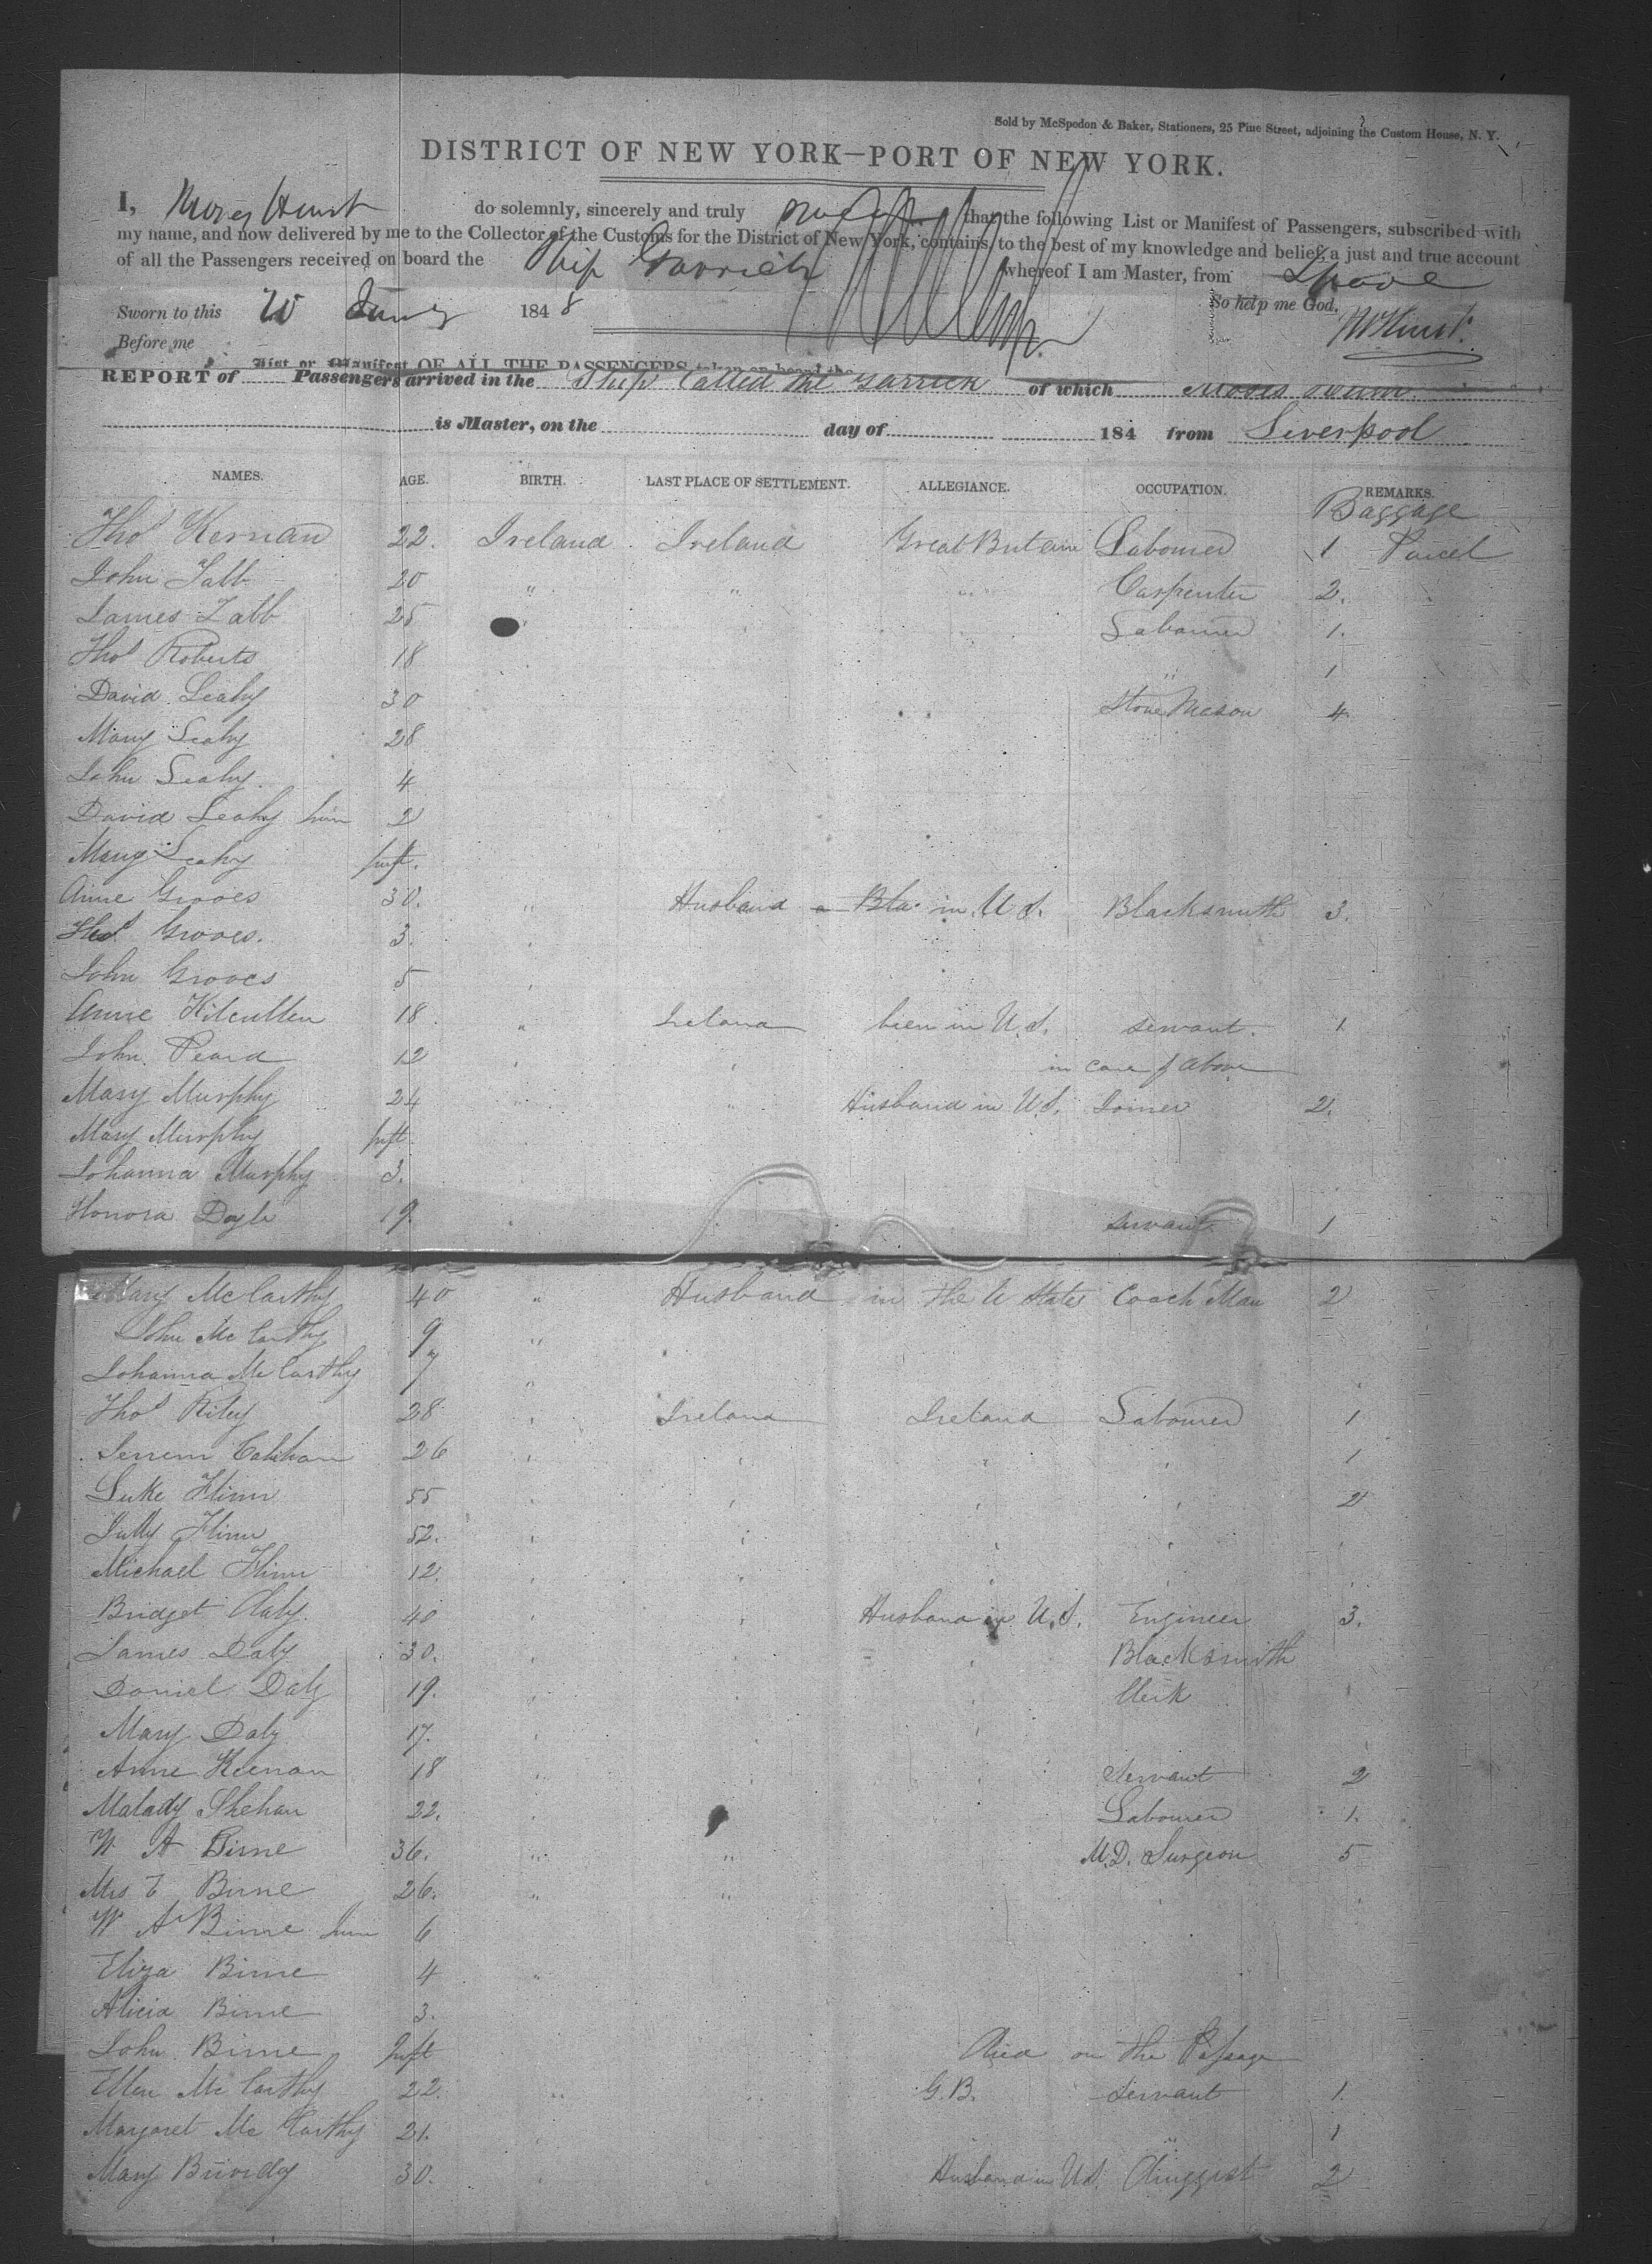 Sold by McSpedon & Baker, Stationers, 25 Pine Street, adjoining the Custom House, N. Y.
DISTRICT OF NEW YORK—PORT OF NEW YORK.
I, Moses Hunt do solemnly, sincerely and truly that the following List or Manifest of Passengers, subscribed with
my name, and now delivered by me to the Collector of the Customs for the District of New York, contains, to the best of my knowledge and belief, a just and true account
of all the Passengers received on board the Ship Garrick whereof I am Master, from
Sworn to this 1848 So help me God.
Before me
List or Manifest OF ALL THE PASSENGERS taken on board the
REPORT of Passengers arrived in the Ship Called the Garrick of which Moses Hunt
is Master, on the day of 184 from Liverpool
NAMES. AGE. BIRTH. LAST PLACE OF SETTLEMENT. ALLEGIANCE. OCCUPATION. REMARKS.
Baggage
Thos Kernan 22. Ireland Ireland Great Britain Labourer 1 Parcel
John Tabb 20 " " " Carpenter 2.
James Tabb 25 Labourer 1.
Thos Roberts 18 " 1
David Leahy 30 Stone Mason 4
Mary Leahy 28
John Leahy 4
David Leahy 2
Mary Leahy Inft.
Anne Groves 30. " Husband in U.S. Blacksmith 3.
Thos Groves. 3.
John Groves 5
Anne Kilcullen 18. " Ireland in U.S. servant. 1
John Peard 12 in care of above
Mary Murphy 24 " " Husband in U.S. Joiner 2.
Mary Murphy Inft.
Johanna Murphy 3.
Honora Doyle 19. servant 1
Mary McCarthy 40 " Husband in the U States Coach Man 2
John McCarthy 9 "
Johanna McCarthy 7 "
Thos Riley 28 Ireland Ireland Labourer 1
26 1
Luke Flinn 55 2
Flinn 52.
Michael Flinn 12.
Bridget Daly. 40 Husband in U.S. Engineer 3.
James Daly 30. Blacksmith
Daniel Daly 19. Clerk
Mary Daly 17.
Anne Keenan 18 Servant 2
Malady Shehan 22. Labourer 1.
W A Birne 36. " " M.D. Surgeon 5
Mrs E Birne 26. " "
W A Birne Junr 6
Eliza Birne 4 "
Alicia Birne 3.
John Birne Inft Died on the Passage
Ellen McCarthy 22. " " G.B. Servant 1.
Margaret McCarthy 21. " 1
Mary 30. Husband in U.S. Druggist 2